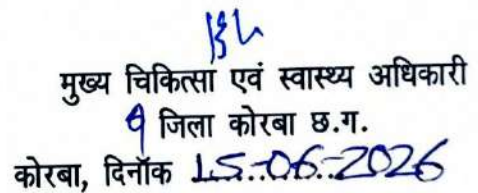 मुख्य चिकित्सा एवं स्वास्थ्य अधिकारी
जिला कोरबा छ.ग.
कोरबा, दिनॉक 15-06-2026